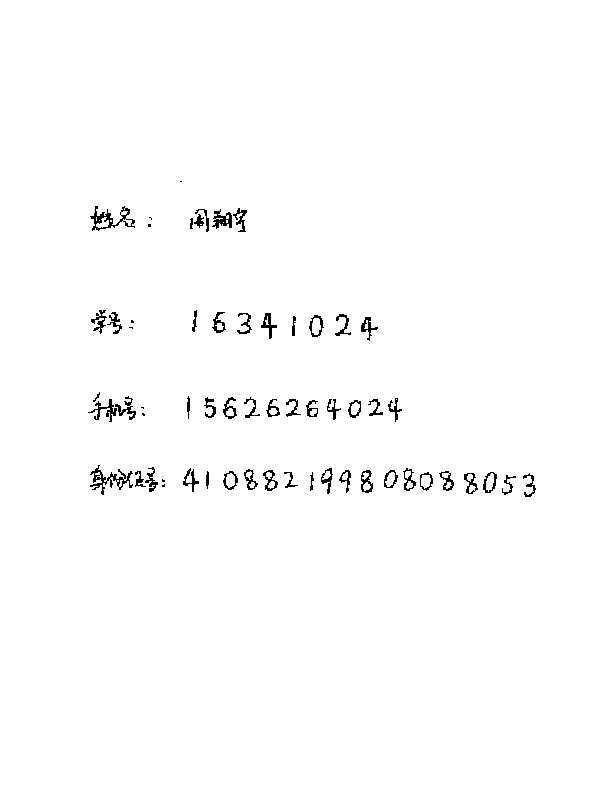 姓名： 周翔宇
学号： 16341024
手机号： 15626264024
身份证号： 410882199808088053